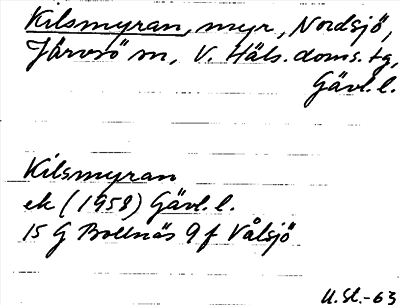 Kilsmyran, myr, Nordsjö,
Järvsö sn, V. Häls. doms. tg,
Gävl. l.
Kilsmyran
ek (1958) Gävl. l.
15 G Bollnäs 9 f Vålsjö
U. Sl.-63